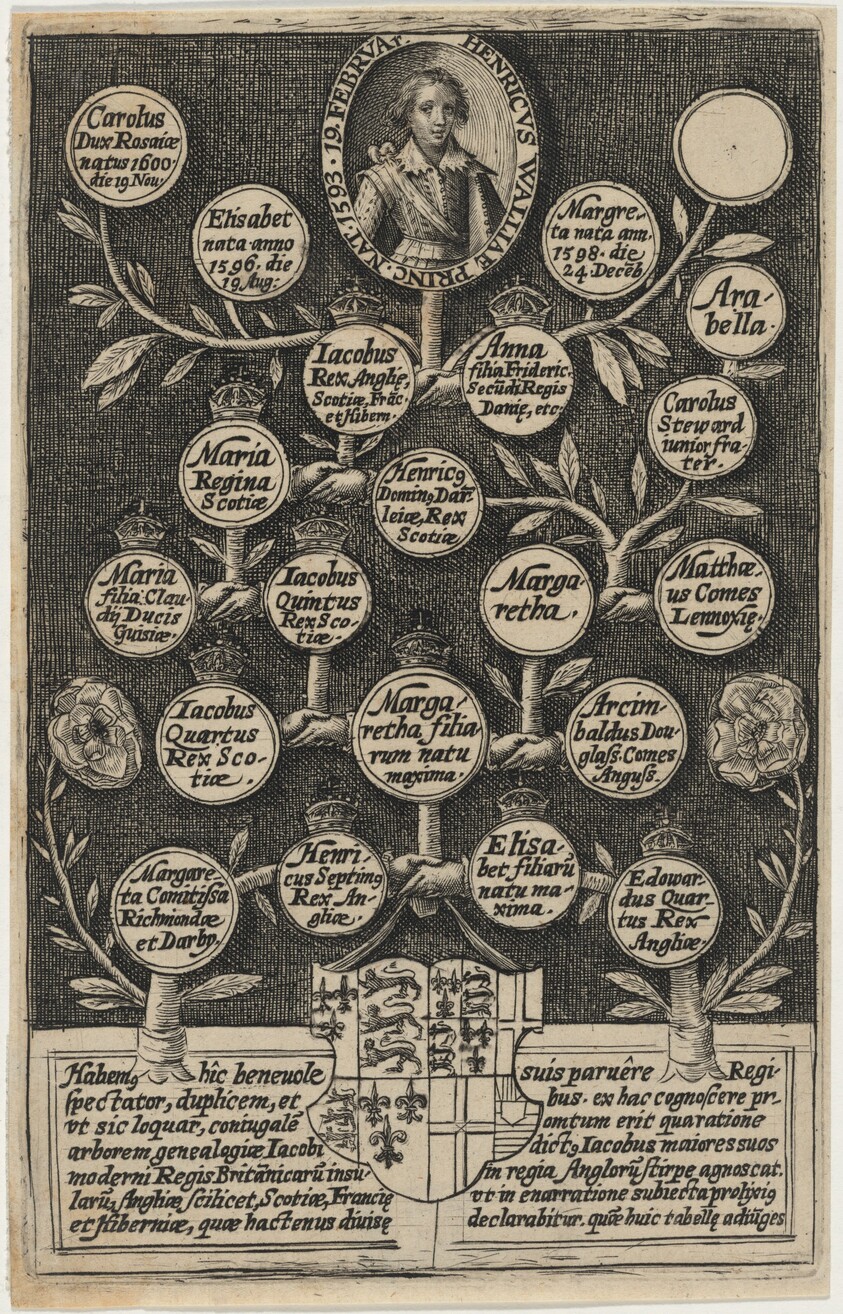 HENRICVS WALLIAE PRINC. NAT. 1593. 19. FEBRVAr.
Carolus
Dux Rosaiæ
natus 1600.
die 19 Nou.
Elisabet
nata anno
1596. die
19 Aug:
Margre-
ta nata ann.
1598. die
24. Decēb
Ara-
bella.
Iacobus
Rex Anglię,
Scotiæ, Frāc.
et Hibern.
Anna
filia Frideric.
Secūdi Regis
Danię, etc.
Carolus
Steward
iunior fra-
ter.
Maria
Regina
Scotiæ
Henricꝰ
Dominꝰ Dar-
leiæ, Rex
Scotiæ
Maria
filia Clau-
dij Ducis
Guisiæ.
Iacobus
Quintus
Rex Sco-
tiæ.
Marga-
retha.
Matthæ-
us Comes
Lennoxię.
Iacobus
Quartus
Rex Sco-
tiæ.
Marga-
retha filia-
rum natu
maxima.
Arcim-
baldus Dou-
glass. Comes
Anguss.
Margare-
ta Comitissa
Richmondæ
et Darby.
Henri-
cus Septimꝰ
Rex An-
gliæ.
Elisa-
bet filiarū
natu ma-
xima.
Edowar-
dus Quar-
tus Rex
Angliæ.
Habemꝰ hîc beneuole
spectator, duplicem, et
vt sic loquar, coniugalē
arborem genealogiæ Iacobi
moderni Regis Britānicarū insu-
larū, Angliæ scilicet, Scotiæ, Francię
et Hiberniæ, quæ hactenus diuisę
suis paruêre Regi-
bus. ex hac cognoscere pr-
omtum erit qua ratione
dictꝰ Iacobus maiores suos
in regia Anglorū stirpe agnoscat.
vt in enarratione subiecta prolixiꝰ
declarabitur. quæ huic tabellę adiūges